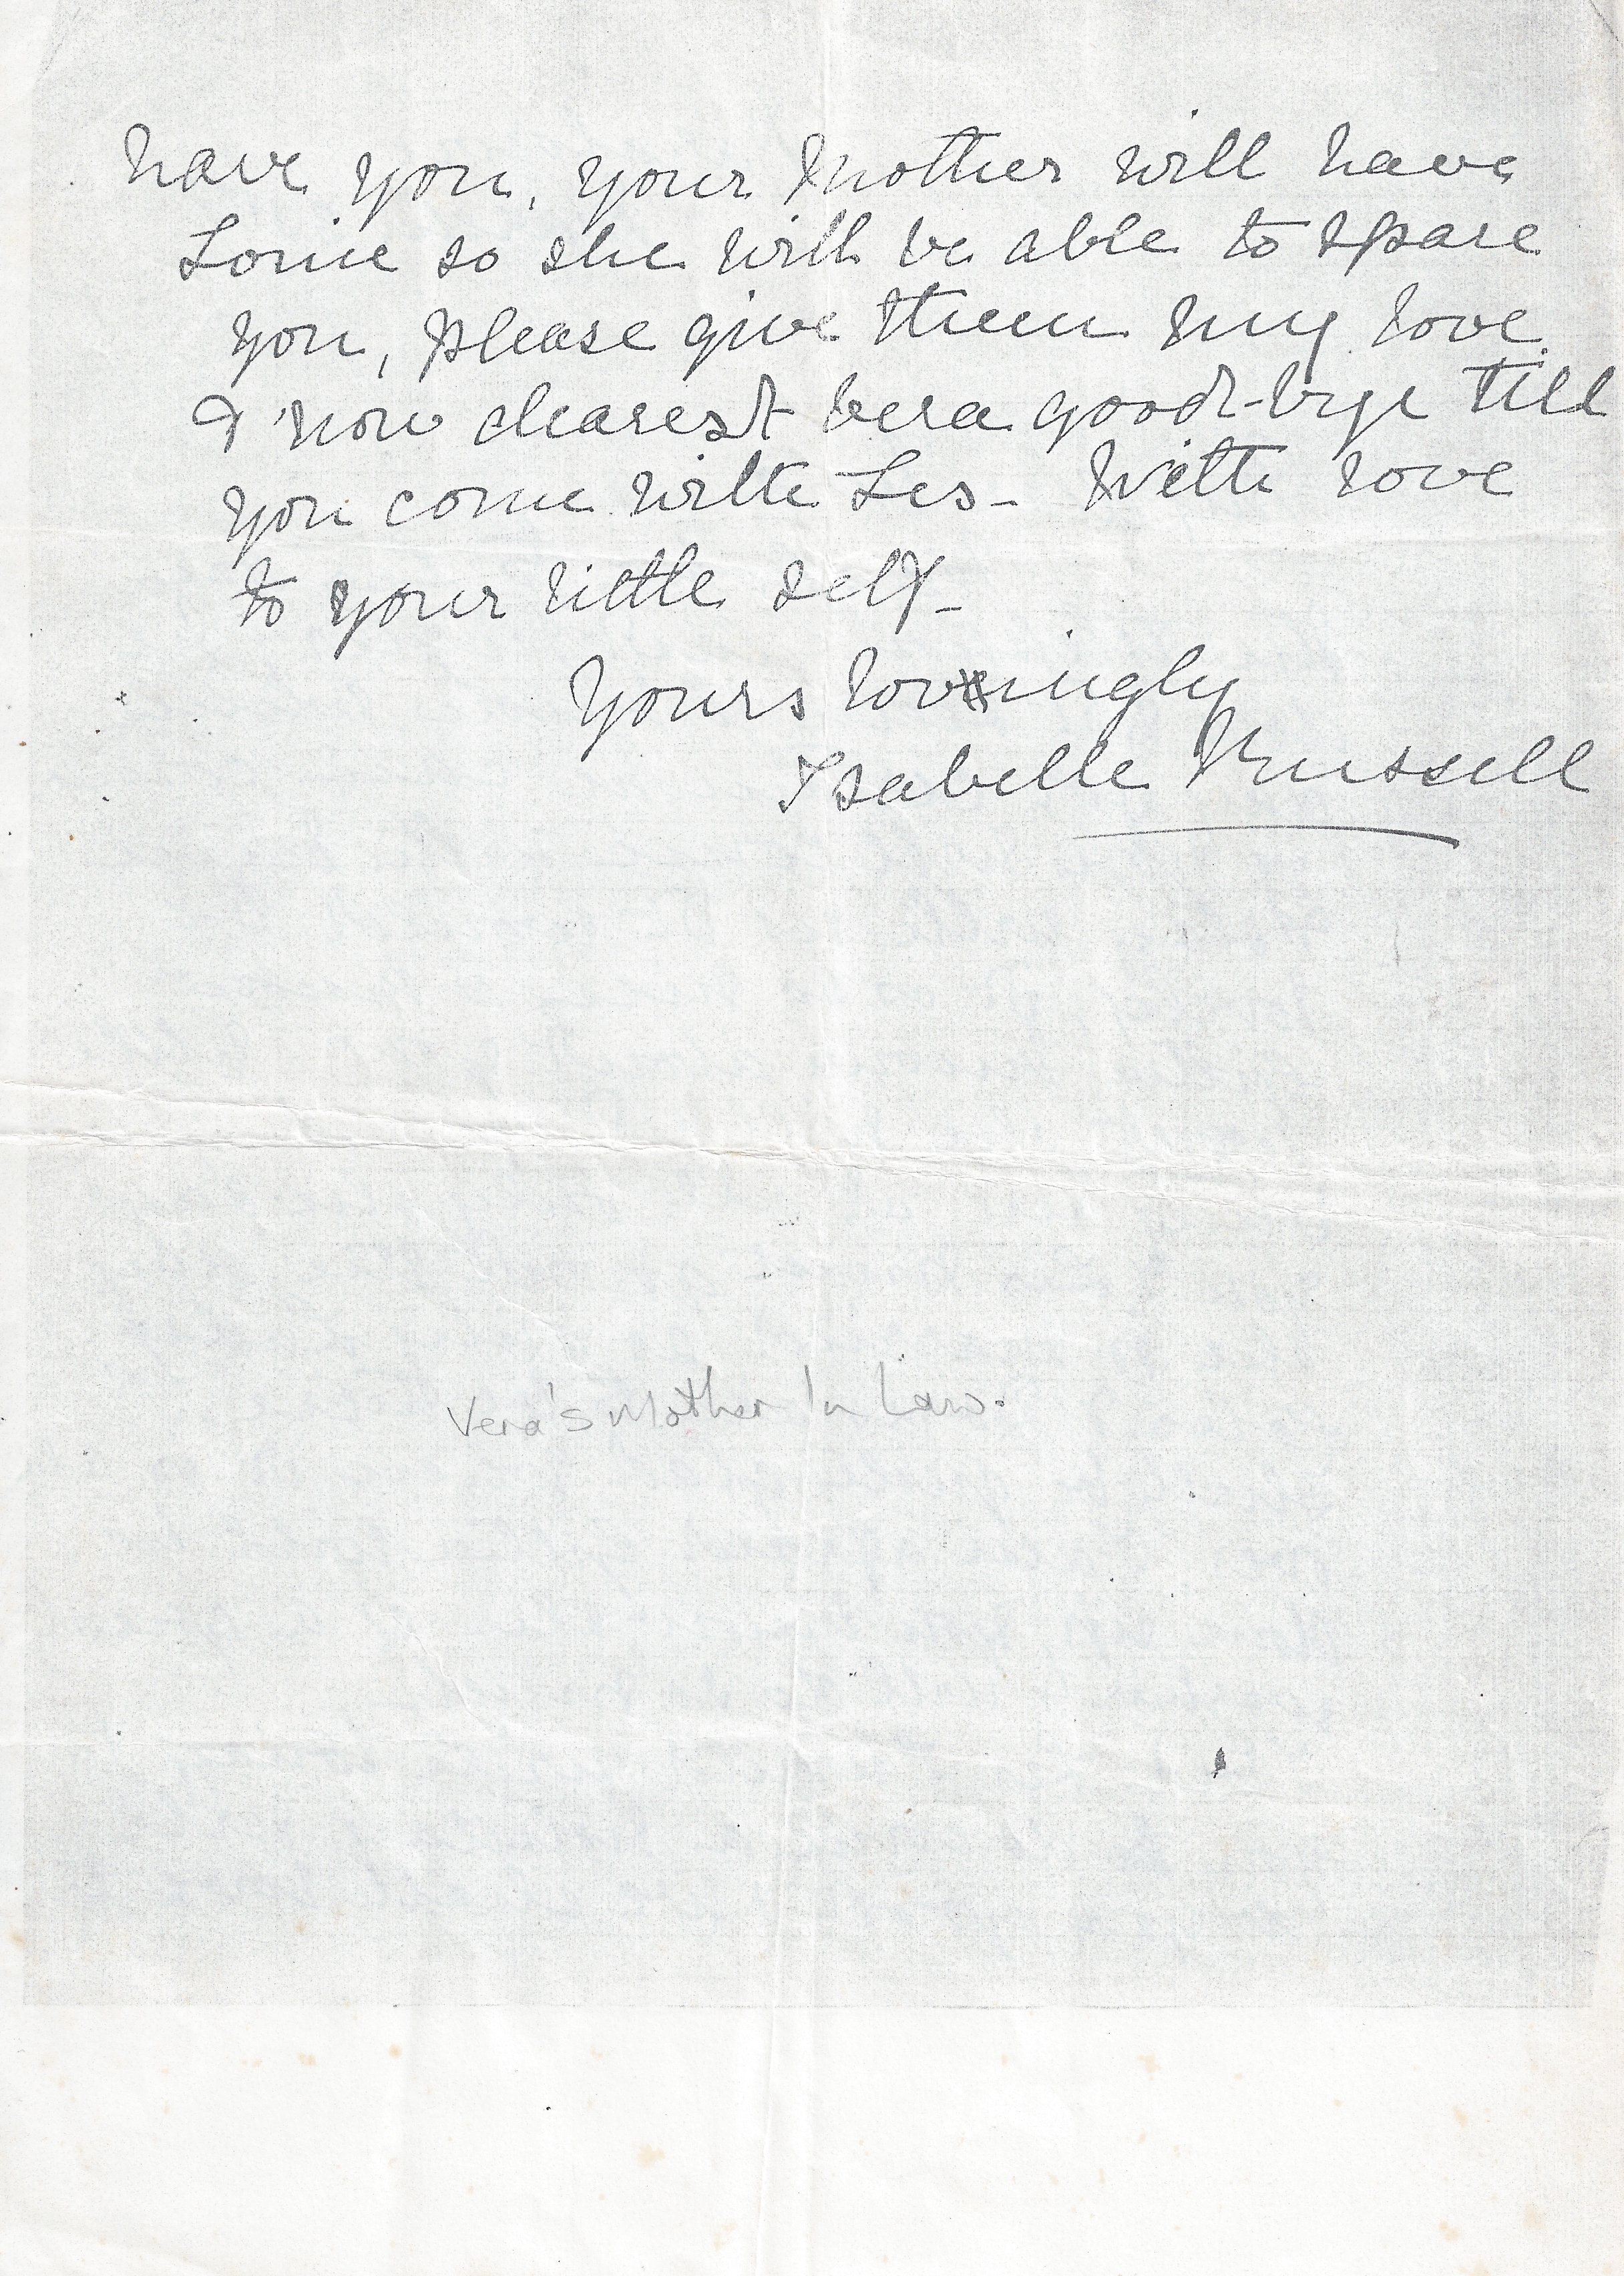 have you, your Mother will have
Louie so she will be able to spare
you, please give them my love.
& now dearest Vera good-bye till
you come with Les - With love
to your little self -
Yours lovingly
Isabelle Russell
Vera's Mother In Law.